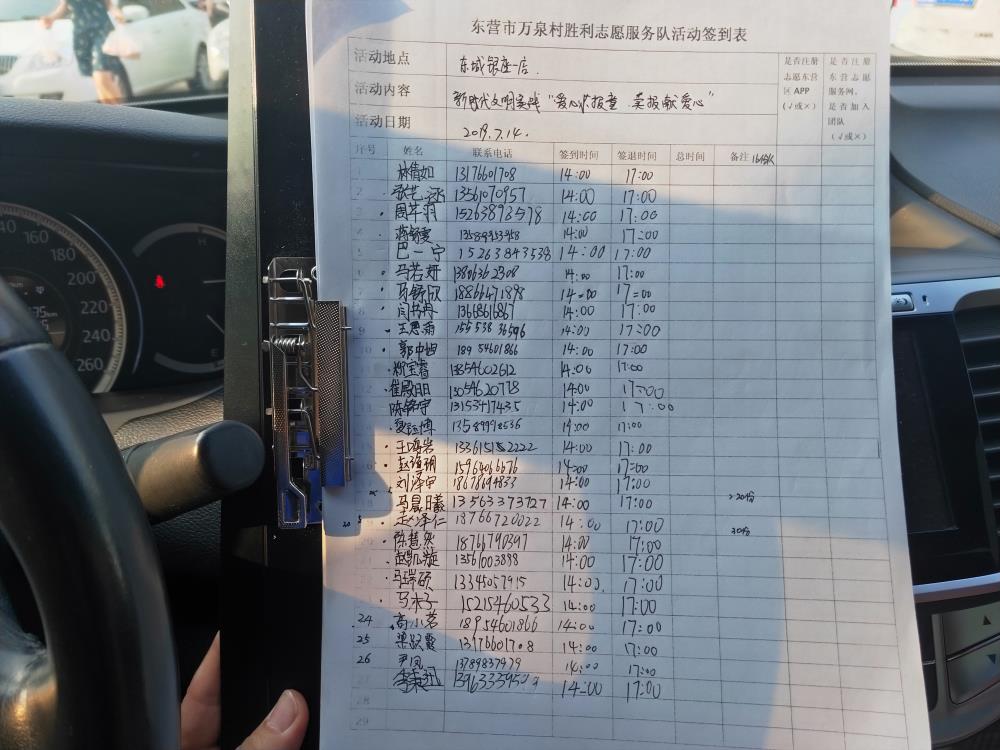 东营市万泉村胜利志愿服务队活动签到表
活动地点 东城银座一店. 是否注册志愿东营区APP(√或×) 是否注册东营志愿服务网,是否加入团队(√或×)
活动内容 新时代文明实践“爱心 报童 卖报献爱心”
活动日期 2019.7.14.
序号 姓名 联系电话 签到时间 签退时间 总时间 备注
林倩如 13176601708 14:00 17:00
2 张艺涵 13561070957 14:00 17:00
周芊羽 15263893578 14:00 17:00
14:00 17:00
巴一宁 15263843538 14:00 17:00
马若妍 14:00 17:00
马舒欣 18866471898 14:00 17:00
闫书冉 13686816867 14:00 17:00
王思涵 155 538 36596 14:00 17:00
郭中旭 189 54601866 14:00 17:00
13854602612 14:00 17:00
崔殿阳 13054620778 14:00 17:00
陈铭宇 13153417435 14:00 17:00
13589998536 14:00 17:00
王鸣岩 14:00 17:00
赵强明 15964066676 14:00 17:00
刘泽宇 18678694833 14:00 17:00
马晨曦 13563373727 14:00 17:00 >20份
赵泽仁 18766720022 14:00 17:00 30份
陈慧然 18766790397 14:00 17:00
赵凯漩 13561003888 14:00 17:00
马瑞硕 13345057915 14:00. 17:00
马木子 15215460533 14:00 17:00
24 高小茗 18954601866 14:00 17:00
25 梁跃霞 13176601708 14:00 17:00
26 尹凤 13789837979 14:00 17:00
27 14:00 17:00
28
29